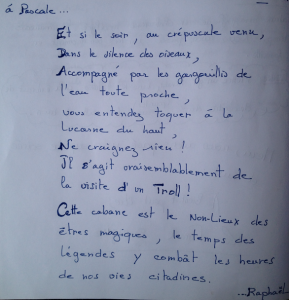 à Pascale...
Et si le soir, au crépuscule venu,
Dans le silence des oiseaux,
Accompagné par les gargouillis de
l'eau toute proche,
vous entendez toquer à la
Lucarne du haut,
Ne craignez rien !
Il s'agit vraisemblablement de
la visite d'un Troll !
Cette cabane est le Non-Lieux des
êtres magiques, le temps des
légendes y combat les heures
de nos vies citadines.
...Raphaël